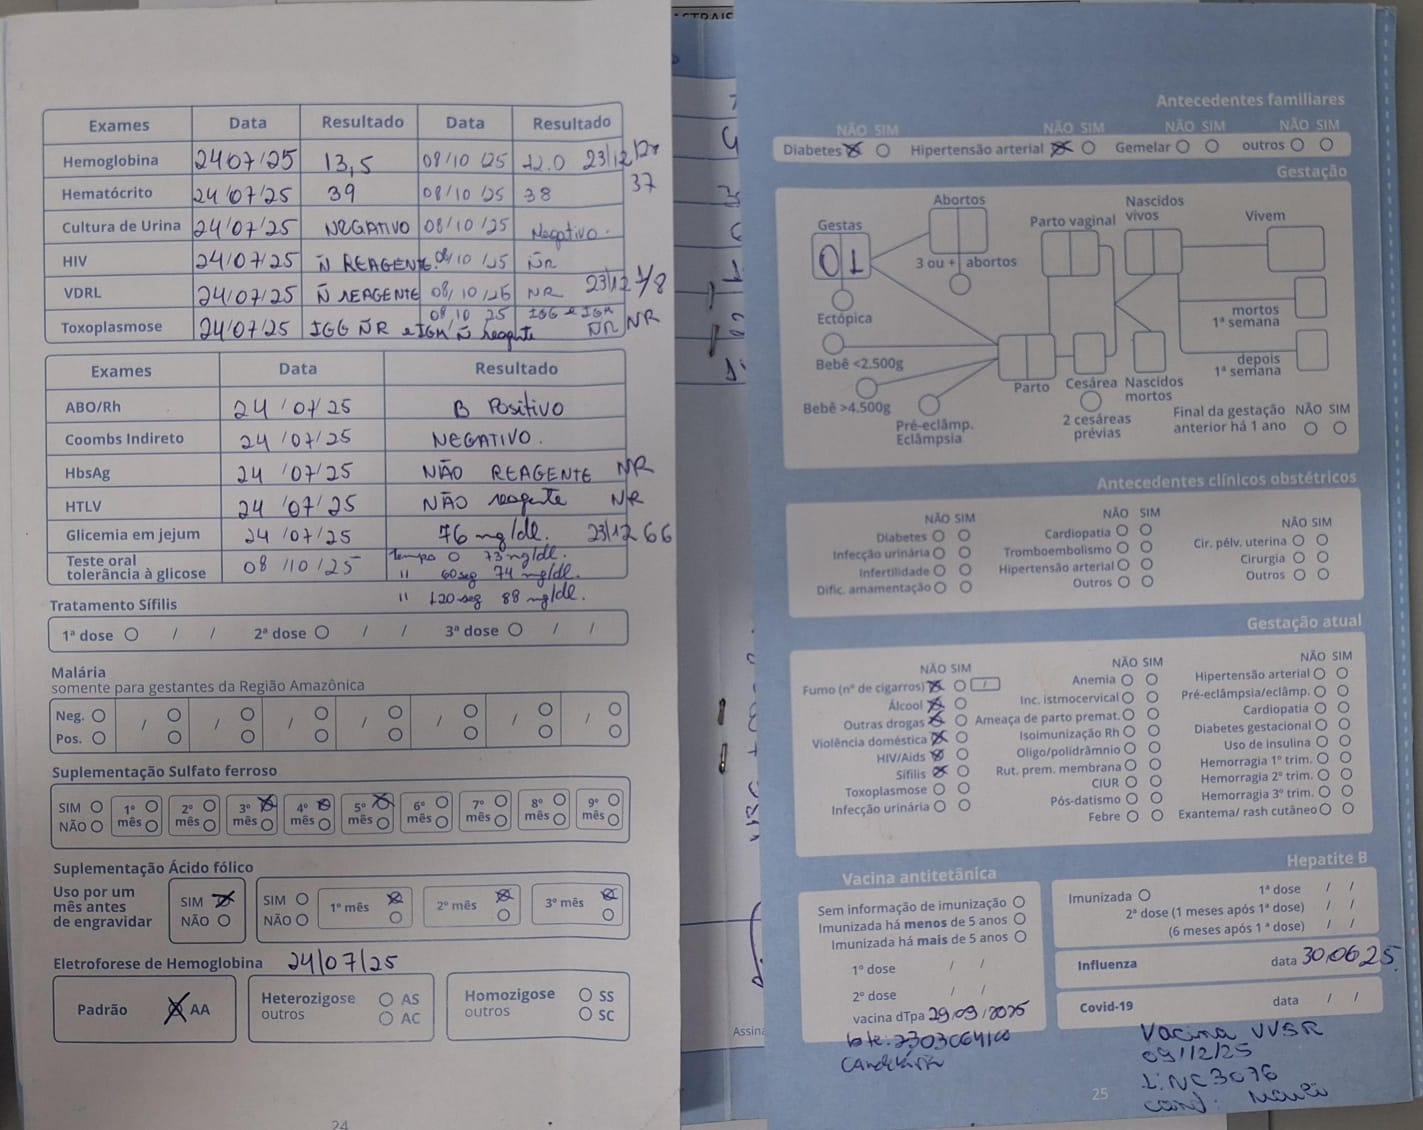 Exames Data Resultado Data Resultado
Hemoglobina 24 07/25 13,5 08/10/25 12.0 23/12
Hematócrito 24/07/25 39 08/10/25 38 37
Cultura de Urina 24/07/25 NEGATIVO 08/10/25 Negativo.
HIV 24/07/25 Ñ REAGENTE. 08/10/25 ÑR
VDRL 24/07/25 Ñ REAGENTE 08/10/25 NR 23/12 1/8
08 10 25 IGG e IGM
Toxoplasmose 24/07/25 IGG ÑR e IGM Ñ reagente ÑR NR
Exames Data Resultado
ABO/Rh 24/07/25 B Positivo
Coombs Indireto 24/07/25 NEGATIVO.
HbsAg 24/07/25 NÃO REAGENTE NR
HTLV 24/07/25 NÃO reagente NR
Glicemia em jejum 24/07/25 76 mg/dl. 23/12 66
Teste oral tempo 0 73 mg/dl.
tolerância à glicose 08/10/25 " 60seg 74 mg/dl.
" 120seg 88 mg/dl.
Tratamento Sífilis
1ª dose / / 2ª dose / / 3ª dose / /
Malária
somente para gestantes da Região Amazônica
Neg. / / / / / / /
Pos.
Suplementação Sulfato ferroso
SIM 1º 2º 3º 4º 5º 6º 7º 8º 9º
NÃO mês mês mês mês mês mês mês mês mês
Suplementação Ácido fólico
Uso por um
mês antes SIM SIM 1º mês 2º mês 3º mês
de engravidar NÃO NÃO
Eletroforese de Hemoglobina 24/07/25
Padrão AA
Heterozigose AS
outros AC
Homozigose SS
outros SC
24
Assin
Antecedentes familiares
NÃO SIM NÃO SIM NÃO SIM NÃO SIM
Diabetes Hipertensão arterial Gemelar outros
Gestação
Abortos Nascidos
Gestas Parto vaginal vivos Vivem
01
3 ou + abortos
Ectópica mortos
1ª semana
Bebê <2.500g depois
1ª semana
Parto Cesárea Nascidos
mortos
Bebê >4.500g Pré-eclâmp.
Eclâmpsia
2 cesáreas
prévias
Final da gestação NÃO SIM
anterior há 1 ano
Antecedentes clínicos obstétricos
NÃO SIM NÃO SIM NÃO SIM
Diabetes Cardiopatia Cir. pélv. uterina
Infecção urinária Tromboembolismo Cirurgia
Infertilidade Hipertensão arterial Outros
Dific. amamentação Outros
Gestação atual
NÃO SIM NÃO SIM NÃO SIM
Fumo (nº de cigarros) / Anemia Hipertensão arterial
Álcool Inc. istmocervical Pré-eclâmpsia/eclâmp.
Outras drogas Ameaça de parto premat. Cardiopatia
Violência doméstica Isoimunização Rh Diabetes gestacional
HIV/Aids Oligo/polidrâmnio Uso de insulina
Sífilis Rut. prem. membrana Hemorragia 1º trim.
Toxoplasmose CIUR Hemorragia 2º trim.
Infecção urinária Pós-datismo Hemorragia 3º trim.
Febre Exantema/ rash cutâneo
Vacina antitetânica
Sem informação de imunização
Imunizada há menos de 5 anos
Imunizada há mais de 5 anos
1ª dose / /
2ª dose / /
vacina dTpa 29/09/2025
Candelária
Hepatite B
Imunizada 1ª dose / /
2ª dose (1 meses após 1ª dose) / /
(6 meses após 1ª dose) / /
Influenza data 30/06 25
Covid-19 data / /
Vacina VVSR
09/12/25
L: NC3076
25